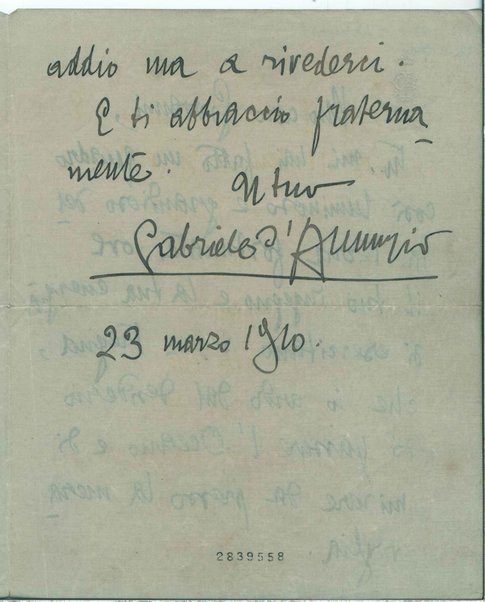 addio ma a rivederci.
E ti abbraccio fraterna_
mente. Il tuo
Gabriele d'Annunzio
23 marzo 1910.
2839558